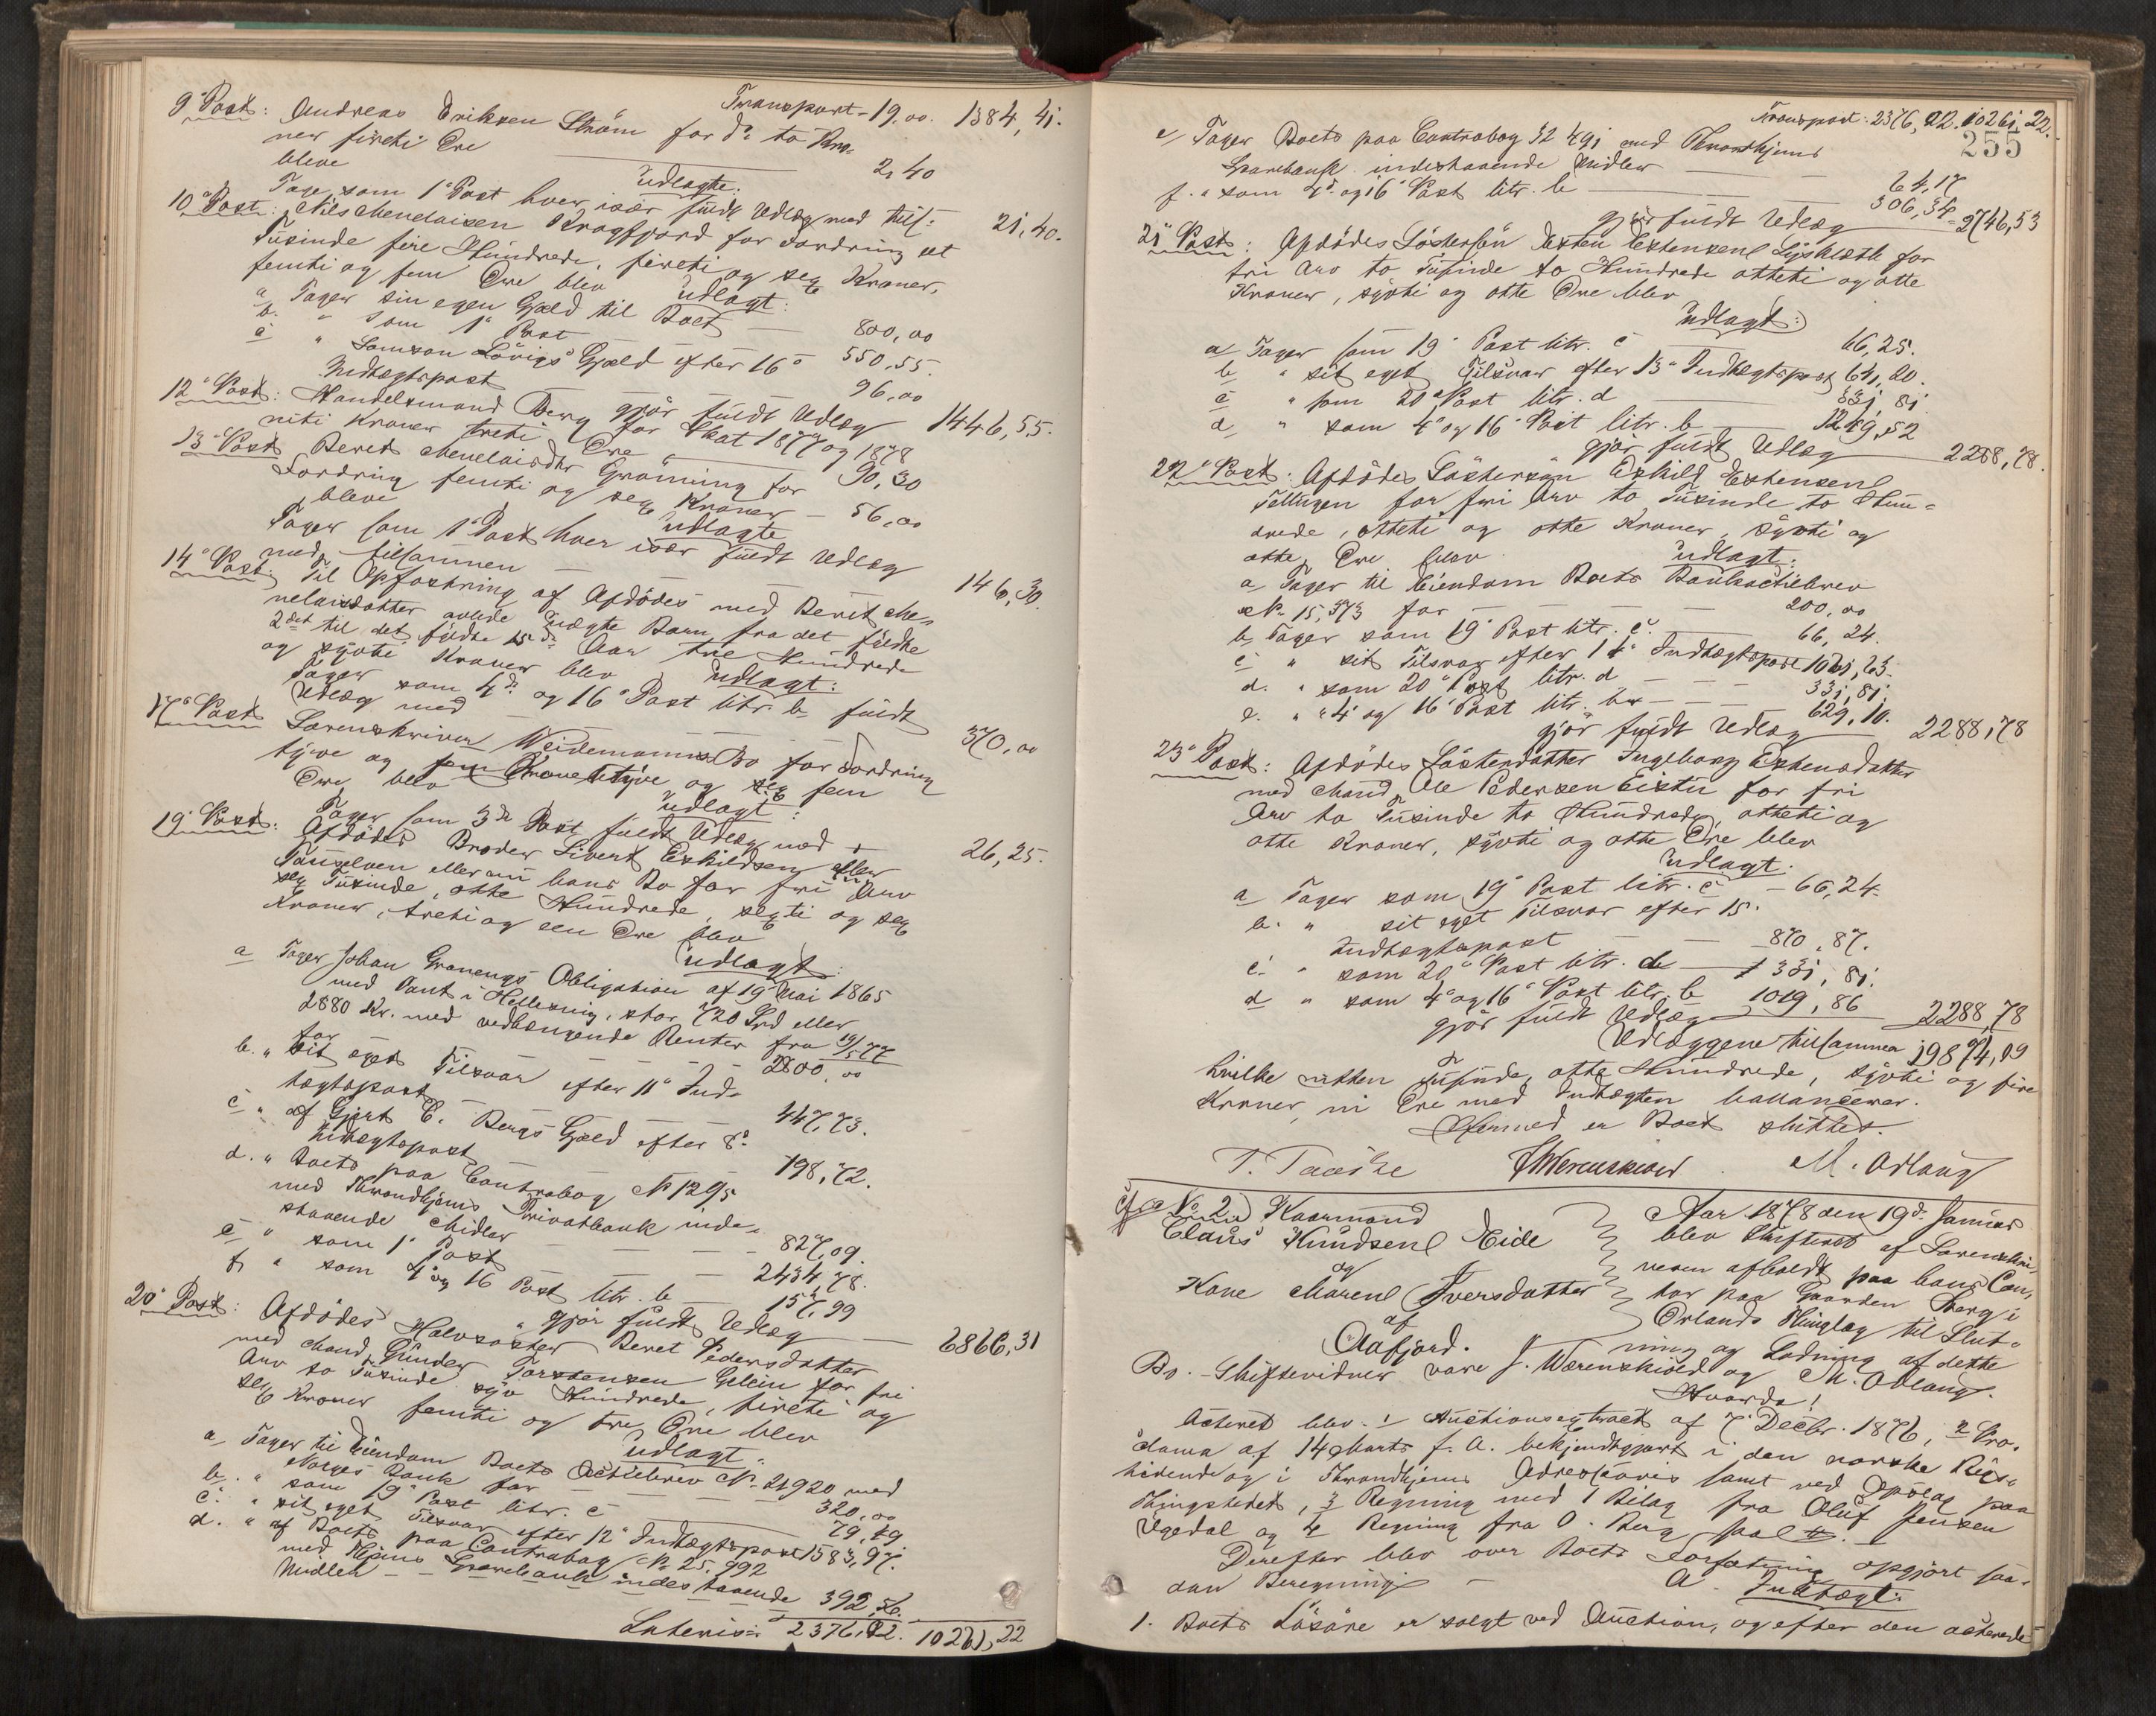 Transport - 19,00. 1384, 41.
9de Post: Andreas Eriksen Ström for do: to Kro-
ner fireti Øre 2,40
bleve udlagte:
Tage som 1e Post hver især fuldt Udlæg med tils: 21,40.
10de Post: Nils Menelaisen Kragfjord for Fordring et
Tusinde fire Hundrede, fireti og sex Kroner,
femti og fem Øre blev udlagt:
a Tager sin egen Gjæld til Boet 800,00
b. " som 1e Post 550,55.
c " Samson Lövigs Gjæld efter 16de
Indtægtspost 96,00
gjör fuldt Udlæg 1446,55.
12te Post: Handelsmand Berg for Skat 1877 og 1878
niti Kroner treti Øre 90,30
13de Post Beret Menelaisdtr Grönning for
Fordring femti og sex Kroner - 56,00
bleve udlagte
Tager som 1e Post hver især fuldt Udlæg
med tilsammen 146,30.
14de Post: Til Opfostring af Afdödes med Berit Me-
nelaisdatter avlede uægte Barn fra det fyldte
2det til det fyldte 15de Aar tre Hundrede
og syvti Kroner blev udlagt:
Tager som 4de og 16de Post litr. b fuldt
Udlæg med 370,00
17de Post Sorenskriver Weidemanns Bo for Fordring
tyve og sex Kroner tyve og fem
Øre blev udlagt:
Tager som 3die Post fuldt Udlæg med 26,25.
19de Post: Afdödes Broder Sivert Eskildsen
eller om hans Bo for fri Arv
sex Tusinde, otte Hundrede, sexti og sex
Kroner, treti og een Øre blev
udlagt:
a Tager Johan Granengs Obligation af 19 Mai 1865
med Pant i Hellesvig, stor 720 Spd eller
2880 Kr. med vedhængende Renter fra 19/5 77
for 2800,00
b. " sit eget Tilsvar efter 11te Ind-
tægtspost 447,73.
c " af Gjert C. Bergs Gjæld efter 8de
Indtægtspost 198,72.
d. " Boets paa Contrabog No 1295
med Throndhjems Privatbank inde-
staaende Midler 827,09.
e " som 1e Post 2434,78.
f, " som 4de og 16 Post litr. b 157,99
gjör fuldt Udlæg 6866,31
20de Post: Afdödes Halvsöster Beret Pedersdatter
med Mand Gunder Torstensen for fri
Arv to Tusinde syv Hundrede, fireti og
sex Kroner femti og tre Øre blev
udlagt.
a Tager til Eiendom Boets Actiebrev No. 21920 med
Norges Bank for 320,00
b. " som 19de Post litr. c 79,49
c. " sit eget Tilsvar efter 12te Indtægtspost 1583,97.
d. " af Boets paa Contrabog No. 25,992
med Thjems Sparebank indestaaende
Midler 392,56.
Lateris: 2376,02. 10261,22
Transport: 2376, 02. 10261,22.
255
e, Tager Boets paa Contrabog 32491 med Throndhjems
Sparebank indestaaende Midler 64,17
f. " som 4de og 16de Post litr. b 306,34
gjör fuldt Udlæg 2746,53
21de Post: Afdödes Söstersön Esten Estensen for
fri Arv to Tusinde to Hundrede otteti og otte
Kroner, syvti og otte Øre blev
udlagt:
a Tager som 19de Post litr. c 66,25.
b " sit eget Tilsvar efter 13de Indtægtspost 641,20.
c " som 20de Post litr. d 331,81
d, " som 4de og 16de Post litr. b 1249,52
gjör fuldt Udlæg 2288,78.
22de Post: Afdödes Söstersön Eskild Estensen
for fri Arv to Tusinde to Hun-
drede, otteti og otte Kroner, syvti og
otte Øre blev udlagt:
a Tager til Eiendom Boets Bankactiebrev
No. 15,373 for 200,00
b, Tager som 19de Post litr. c 66,24.
c " sit Tilsvar efter 14de Indtægtspost 1061,63.
d. " som 20de Post litr. d 331,81
e. " " 4de og 16de Post litr. b 629,10.
gjör fuldt Udlæg 2288,78
23de Post: Afdödes Sösterdatter Ingeborg Estensdatter
med Mand Ole Pedersen for fri
Arv to Tusinde to Hundrede, otteti og
otte Kroner, syvti og otte Øre blev
udlagt:
a Tager som 19de Post litr. c - 66,24.
b. " sit eget Tilsvar efter 15.
Indtægtspost 870,87.
c. " som 20de Post litr. d 331,81.
d " som 4de og 16de Post litr. b 1019,86
gjör fuldt Udlæg 2288,78
Udlæggene tilsammen 19874,09
hvilke nitten Tusinde, otte Hundrede, syvti og fire
Kroner, ni Øre med Indtægten ballancerer.
Hermed er Boet sluttet.
M. Odlaug
No 2) Kaarmand
Claus Knudsen Eide
og
Kone Maren Iversdatter
af
Aafjord.
Aar 1878 den 19de Januar
blev Skifteret af Sorenskri-
veren afholdt paa hans Con-
tor paa Gaarden Berg i
Ørlands Thinglag til Slut-
ning og Lodning af dette
Bo. - Skiftevidner vare J. Werenskiold og M. Odlaug.
Hvorda!
Acteret blev: 1 Auctionsextract af 7 Decbr. 1876, 2 Pro-
clama af 14 Marts f. A. bekjendtgjort i den norske Rigs-
tidende og i Throndhjems Adresseavis samt ved Opslag paa
Thingstedet, 3 Regning med 1 Bilag fra Oluf Jensen
Ugedal og 4 Regning fra O. Berg
Derefter blev over Boets Forfatning opgjort saa-
dan Beregning A. Indtægt:
1. Boets Lösöre er solgt ved Auction, og efter den acterede